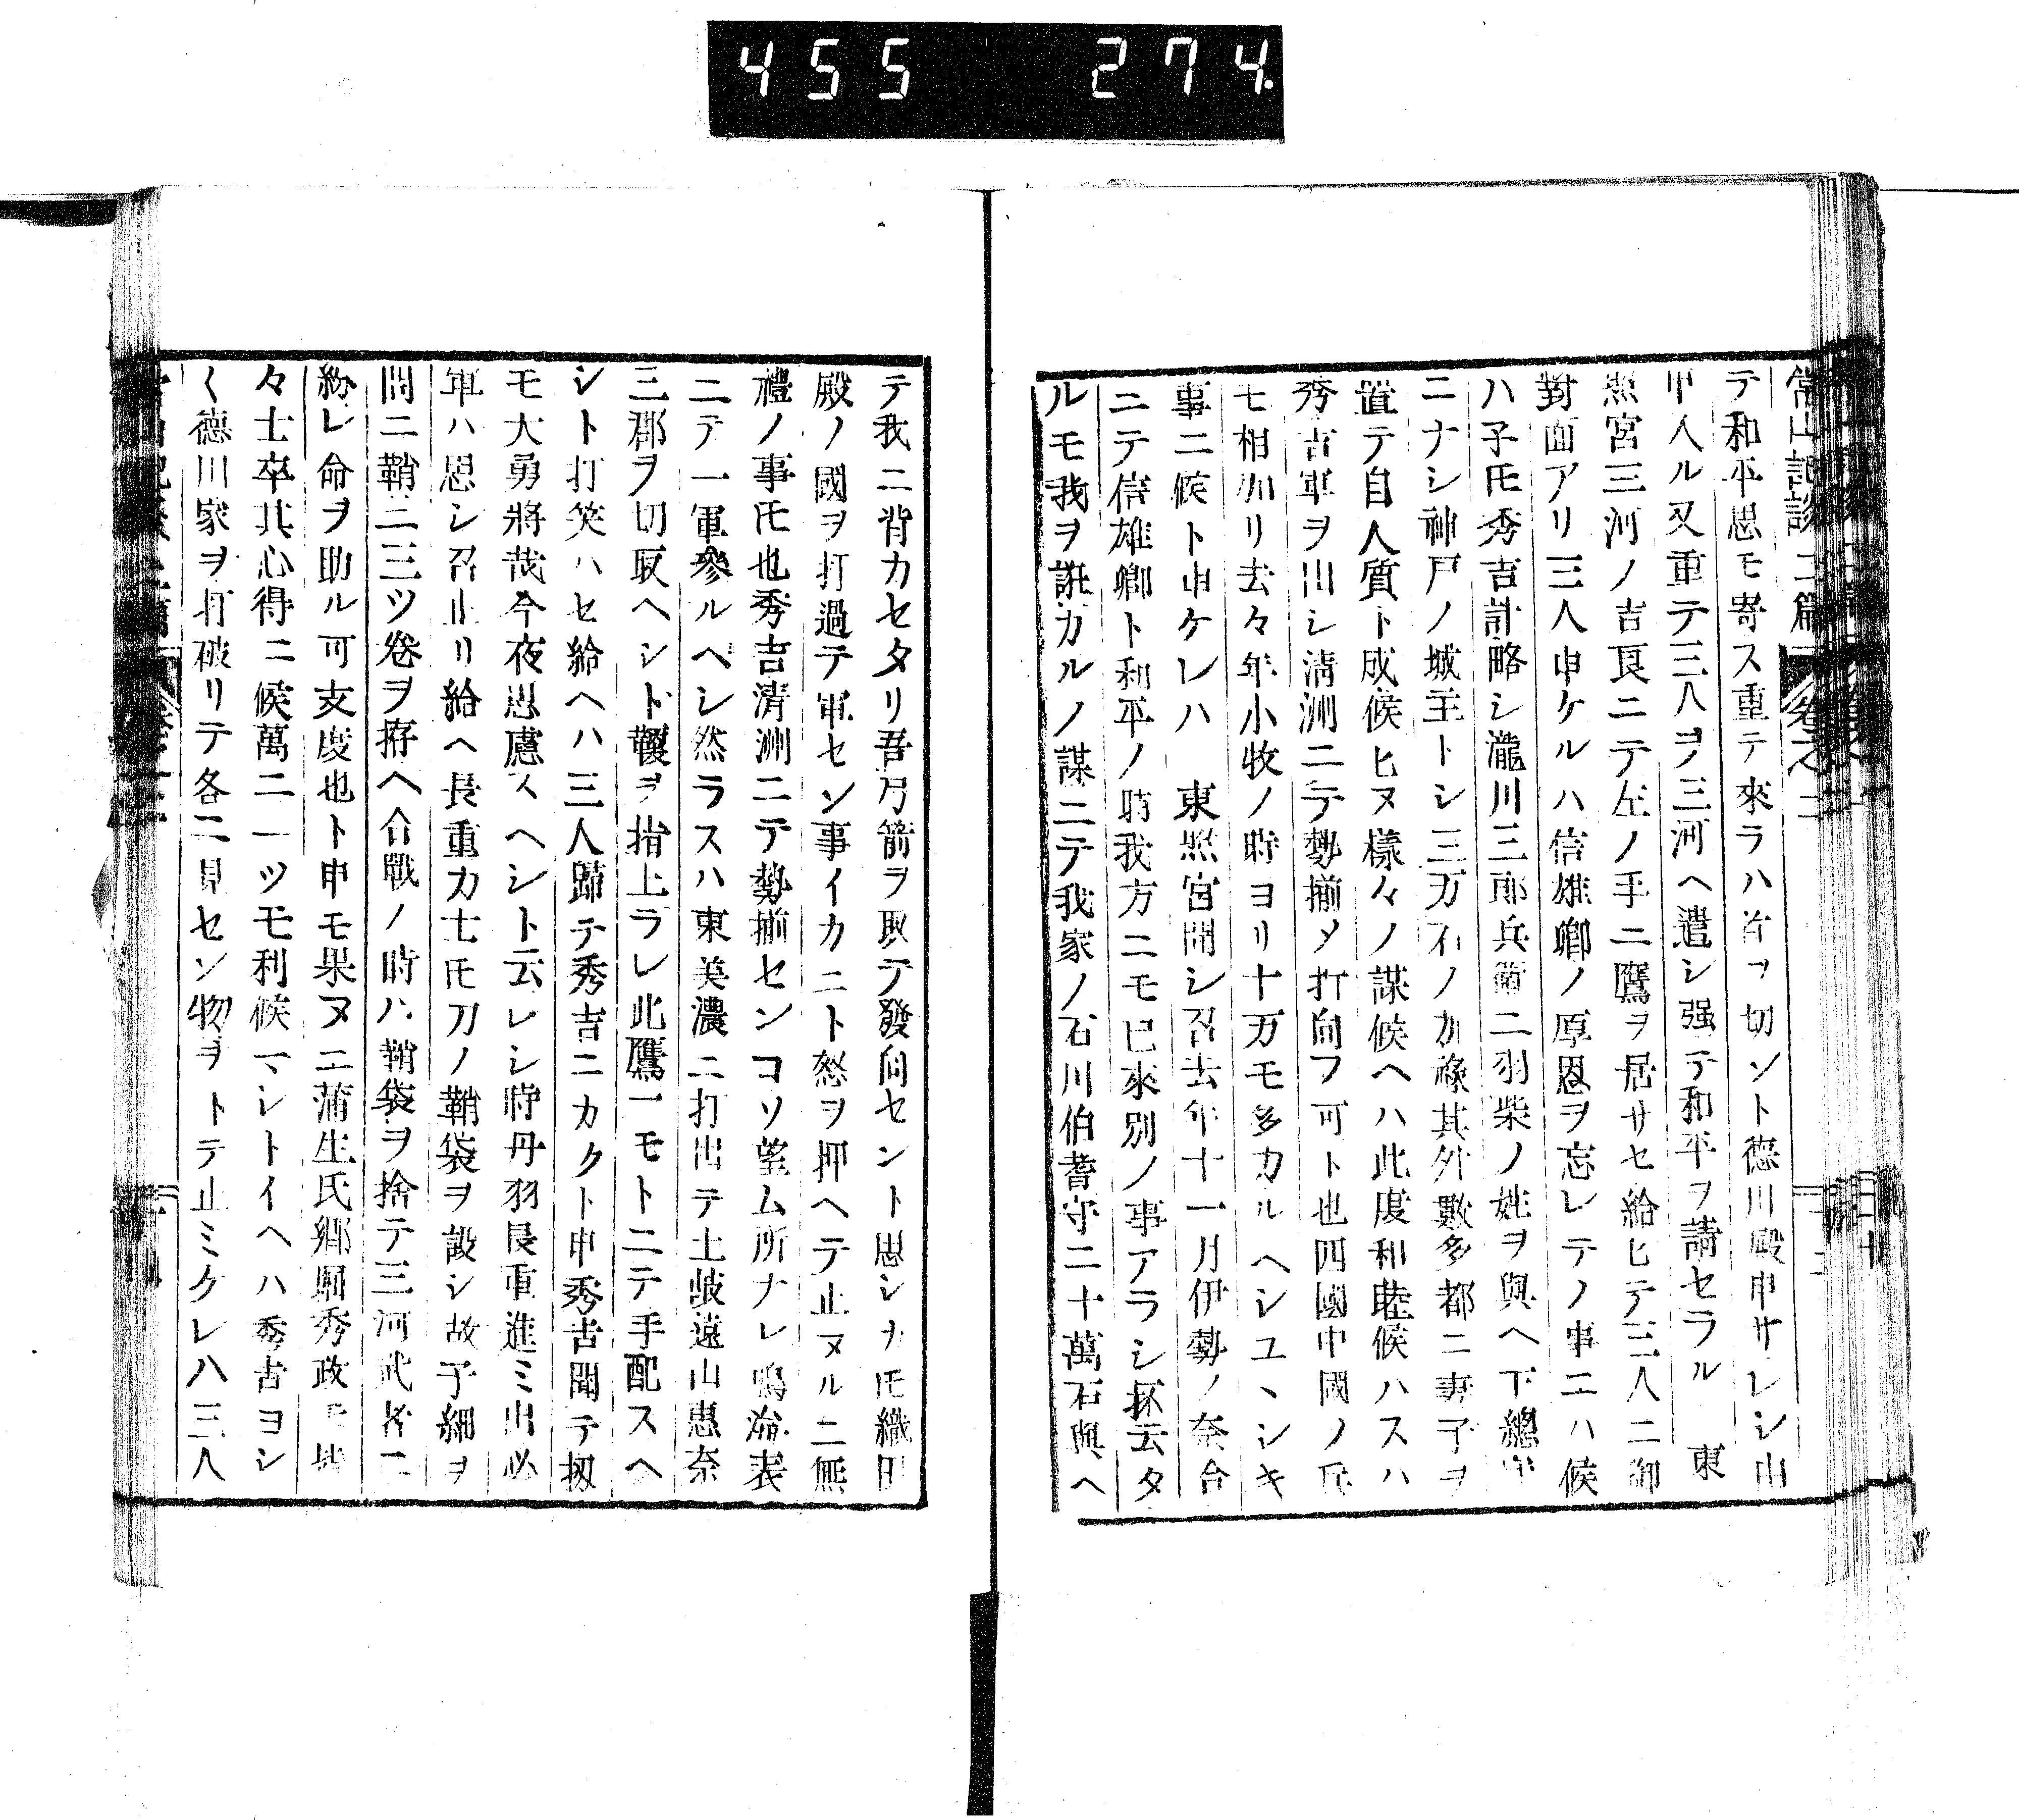 455 274.
常山紀談二篇 卷之二
テ和平思モ寄ス重テ來ラハ首ヲ切ント德川殿申サレシ由
申入ル又重テ三人ヲ三河ヘ遣シ强テ和平ヲ請セラル 東
照宮三河ノ吉良ニテ左ノ手ニ鷹ヲ居サセ給ヒテ三人ニ御
對面アリ三人申ケルハ信雄卿ノ厚恩ヲ忘レテノ事ニハ候
ハ子𪜈秀吉計略シ瀧川三郎兵衛ニ羽柴ノ姓ヲ與ヘ下總守
ニナシ神戸ノ城主トシ三万石ノ加祿其外數多都ニ妻子ヲ
置テ自人質ト成候ヒヌ樣々ノ謀候ヘハ此度和睦候ハスハ
秀吉軍ヲ出シ淸洲ニテ勢揃メ打向フ可ト也四國中國ノ兵
モ相加リ去々年小牧ノ時ヨリ十万モ多カルヘシユヽシキ
事ニ候ト申ケレハ 東照宮聞シ召去年十一月伊勢ノ桑名
ニテ信雄卿ト和平ノ時我方ニモ已來別ノ事アラシ抔云タ
ルモ我ヲ誑カルノ謀ニテ我家ノ石川伯耆守ニ十萬石與ヘ
テ我ニ背カセタリ吾弓箭ヲ取テ發向セント思シカ𪜈織田
殿ノ國ヲ打過テ軍セン事イカニト怒ヲ押ヘテ止ヌルニ無
禮ノ事𪜈也秀吉淸洲ニテ勢揃センコソ望ム所ナレ鳴海表
ニテ一軍參ルヘシ然ラスハ東美濃ニ打出テ土岐遠山惠奈
三郡ヲ切取ヘシト鞭ヲ指上ラレ此鷹一モトニテ手配スヘ
シト打笑ハセ給ヘハ三人歸テ秀吉ニカクト申秀吉聞テ扨
モ大勇將哉今夜思慮スヘシト云レシ時丹羽長重進ミ出必
軍ハ思シ召止リ給ヘ長重カ士𪜈刀ノ鞘袋ヲ設シ故子細ヲ
問ニ鞘ニ三ツ卷ヲ拵ヘ合戰ノ時ハ鞘袋ヲ捨テ三河武者ニ
紛レ命ヲ助ル可支度也ト申モ果ヌニ蒲生氏鄕堀秀政モ皆
々士卒其心得ニ候萬ニ一ツモ利候マシトイヘハ秀吉ヨシ
く德川家ヲ打破リテ各ニ見セン物ヲトテ止ミケレハ三人